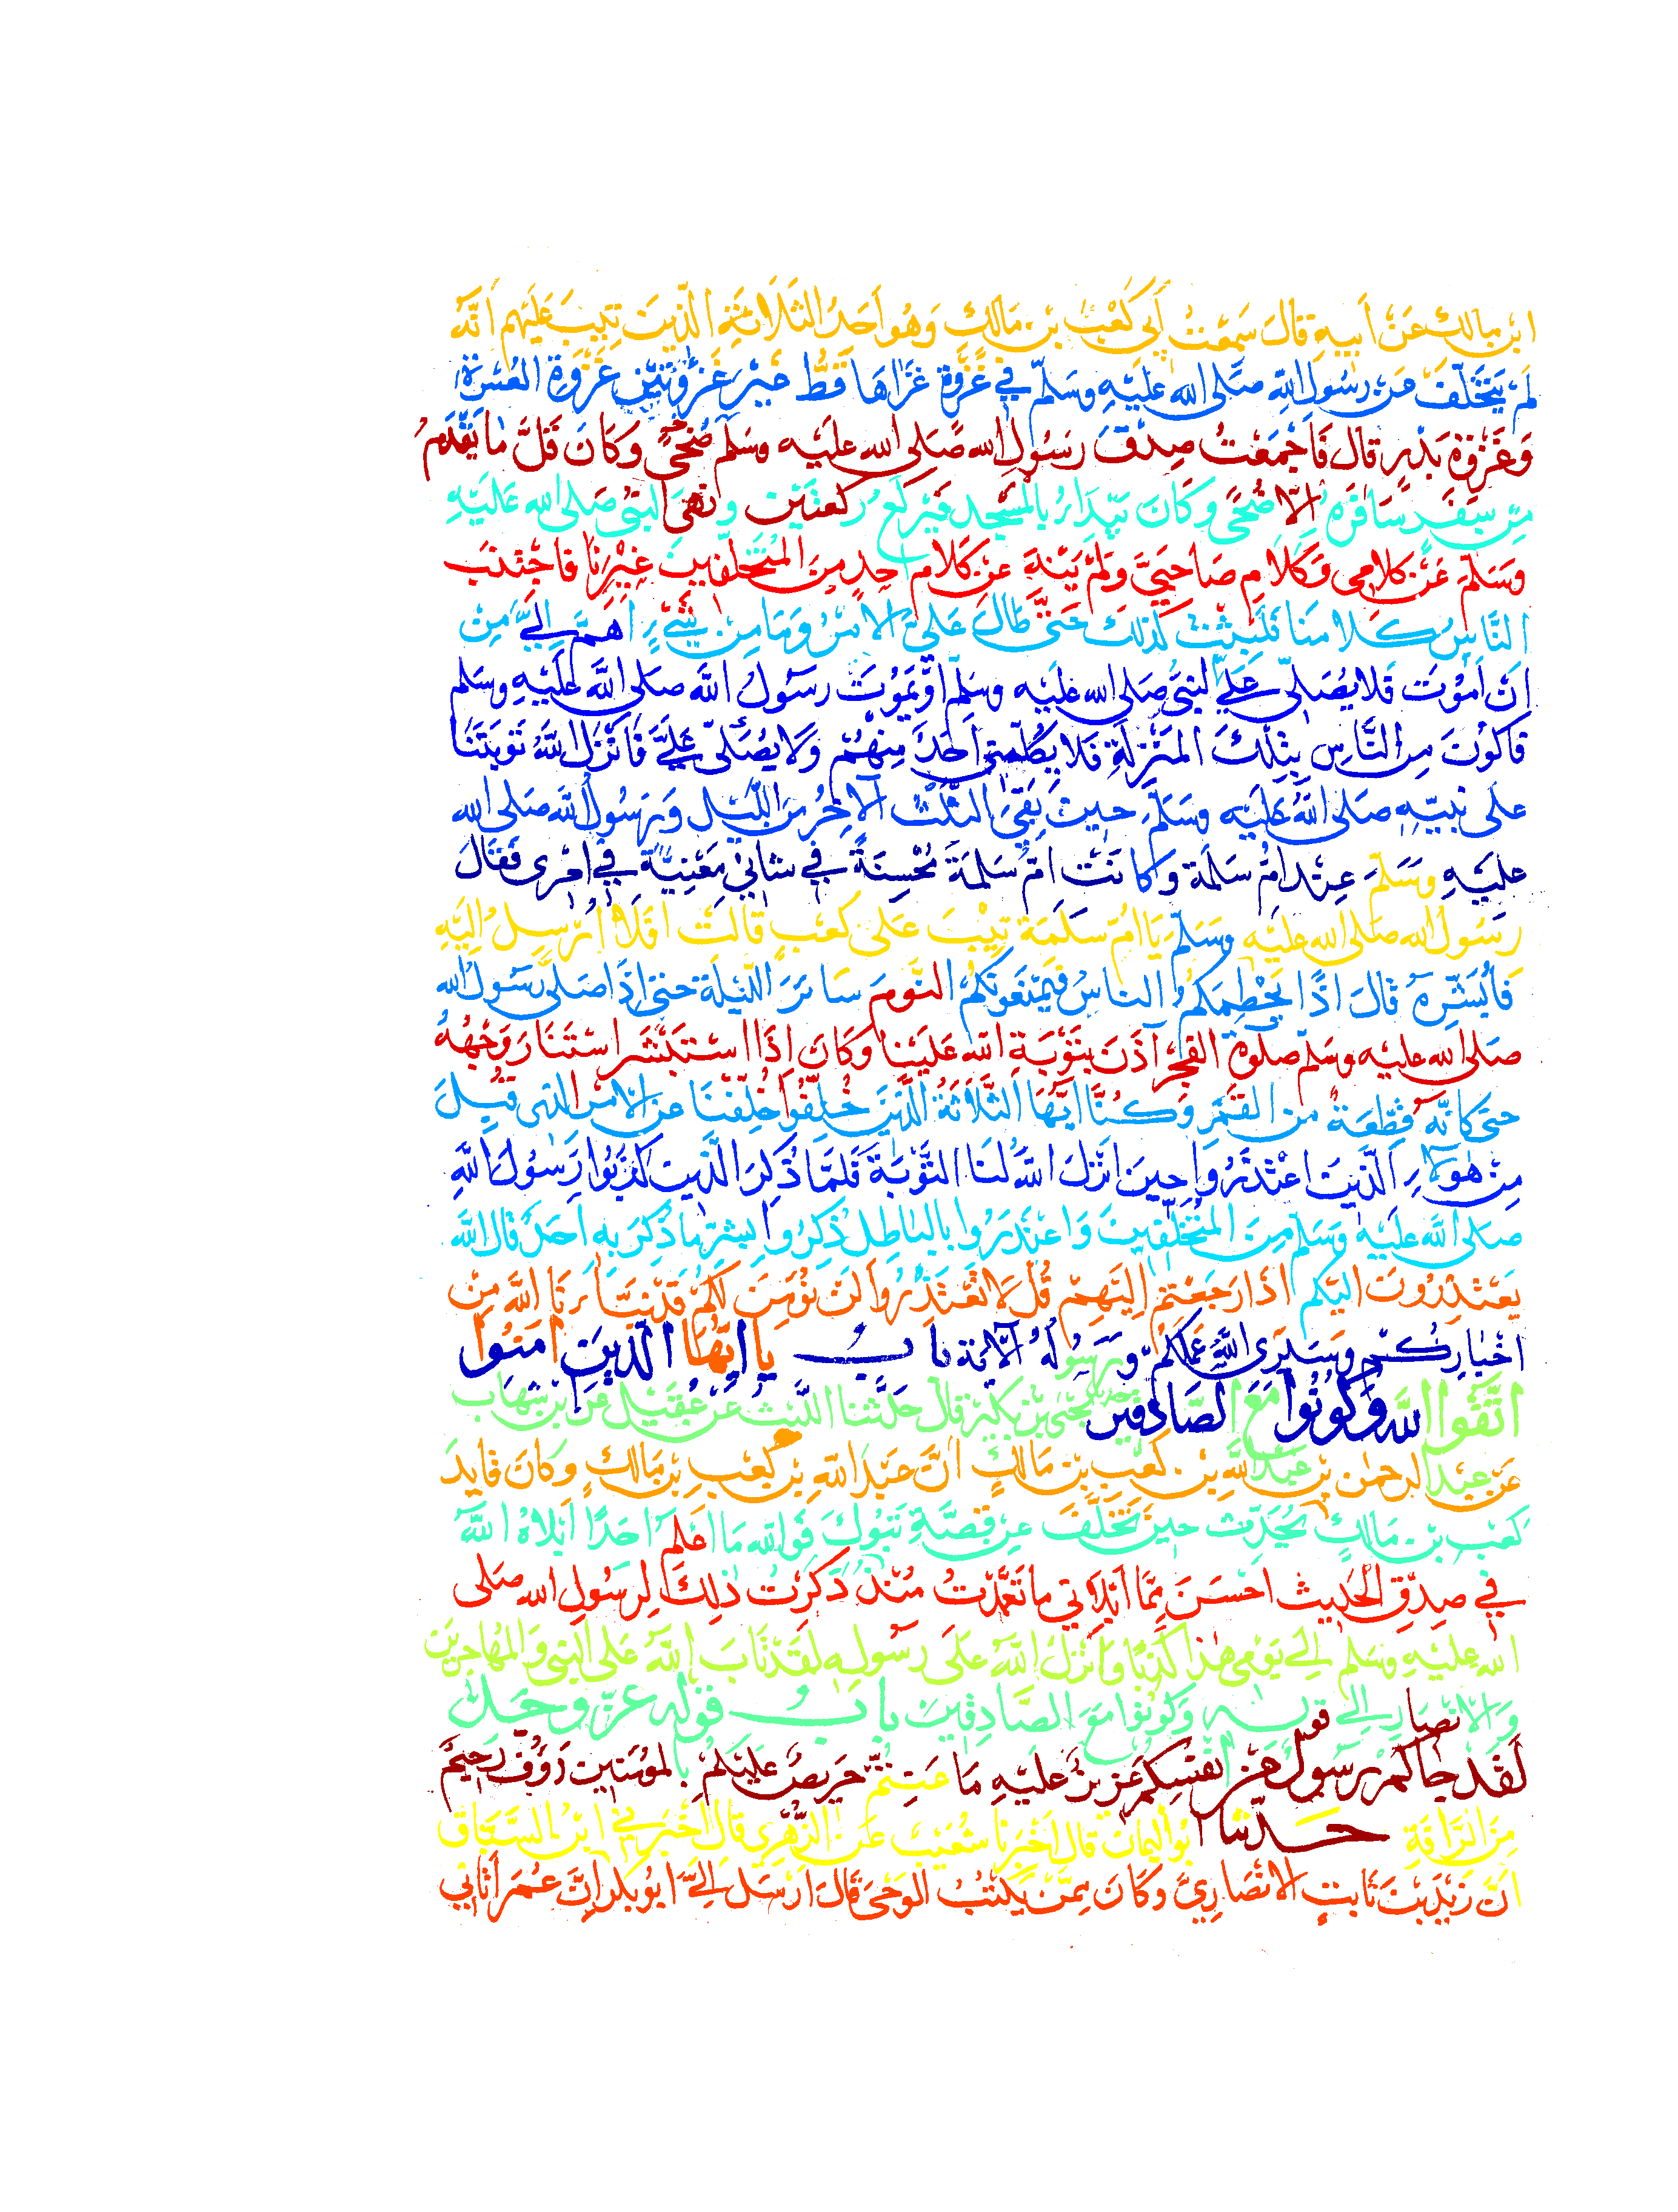 ابن مالك عَنْ أَبيهِ قالَ سَمِعْتُ أَبي كَعْبَ بن مَالِكٍ وَهُوَ أَحَدُ الثَّلَاثَةِ الَّذِينَ تِيبَ عَلَيْهِم أَنَّهُ
لَمْ يَتَخَلَّفْ عَنْ رسُولِ اللهِ صَلى الله عَلَيْهِ وسَلم في غَزْوَةٍ غَزَاهَا قَطُّ غَيْرَ غَزْوَتَيْنِ غَزْوَةِ العُسْرَةِ
وَغَزْوَةِ بَدْرٍ قالَ فَأَجْمَعْتُ صِدْقَ رَسُولِ الله صَلى الله علَيْه وسَلم ضُحًى وَكَانَ قَلَّ مَا يَقْدَمُ
مِنْ سَفَرٍ سَافَرَهُ إلّا ضُحًى وَكَانَ يَبْدَأُ بالْمَسْجِدِ فَيَرْكَعُ رَكعَتَيْن ونَهَى النبيُّ صَلى الله عَلَيْهِ
وَسَلمَ عَنْ كَلامِي وَكَلامِ صَاحِبَيَّ وَلَمْ يَنْهَ عَنْ كَلامِ أحدٍ مِنَ المُتَخَلِّفِينَ غَيْرِنَا فاجْتَنَبَ
النَّاسُ كَلامَنَا فَلَبِثْتُ كَذلِكَ حَتَّى طَالَ عَلَيَّ الامْرُ وَمَا مِنْ شَيْءٍ أَهَمَّ إلَيَّ مِنْ
أَنْ أَمُوْتَ فَلا يُصَلِّي عَلَيَّ النبيُّ صَلى الله عَلَيْه وسَلم أَوْ يَمُوْتَ رَسُولُ الله صَلى اللهَ عَلَيْهِ وسَلم
فَأَكُوْنَ مِنَ النَّاسِ بِتِلْكَ المَنْزِلَةِ فَلا يُكَلِّمُنِي أَحَدٌ مِنْهُمْ وَلا يُصَلِّي عَلَيَّ فَأَنْزَلَ اللهُ تَوْبَتَنَا
عَلَى نَبيّهِ صَلى اللهُ عَلَيْه وسَلمَ حِينَ بَقِيَ الثُّلُثُ الآخِرُ مِنَ اللَّيْلِ وَرَسُولُ اللهِ صَلى الله
علَيْهِ وَسَلمَ عِنْدَ أُمِّ سَلَمَة وكَانَتْ أُمُّ سَلَمَةَ مُحْسِنَةً في شَأْنِي مَعْنِيَّةً في أَمْرِي فَقَالَ
رَسُولُ الله صَلى الله علَيْه وسَلمَ يَا أُمَّ سَلَمَة تِيْبَ عَلى كَعْبٍ قَالَتْ أَفَلَا أُرْسِلُ إلَيْهِ
فَأُبَشِّرَهُ قَالَ إذًا يَحْطِمَكُمُ الناسُ فَيَمْنَعُونَكُمُ النَّومَ سَائِرَ اللَّيْلَةِ حتى إذَا صَلى رَسُولُ الله
صَلى الله عليْه وسَلم صَلَوةَ الفَجْرِ آذَنَ بِتَوْبَةِ الله عَلَيْنَا وَكَانَ إذَا اسْتَبْشَرَ اسْتَنَارَ وَجْهُهُ
حتى كَأَنَّهُ قِطْعَةٌ من القَمَرِ وَكُنَّا أَيُّهَا الثَّلَاثَةُ الَّذِينَ خُلِّفُوا خُلِّفْنَا عن الامْرِ الذي قُبِلَ
مِنْ هؤلاءِ الَّذِينَ اعْتَذَرُوا حِينَ أَنْزَلَ اللهُ لَنَا التَّوْبَةَ فَلَمَّا ذُكِرَ الَّذِينَ كَذَبُوا رَسُولَ اللهِ
صَلى الله عليْه وَسَلم مِنَ المُتَخَلِّفِينَ وَاعْتَذَرُوا بِالبَاطِل ذُكِرُوا بِشَرِّ مَا ذُكِرَ بِهِ أَحَدٌ قال الله
يَعْتَذِرُونَ إلَيْكُم إذَا رَجَعْتُمْ إلَيْهِمْ قُلْ لَا تَعْتَذِرُوا لَنْ نُؤْمِنَ لَكُمْ قَدْ نَبَّأَنَا اللهُ مِنْ
أخْبَارِكُمْ وَسَيَرَى اللهُ عَمَلَكُمْ وَرَسُولُهُ الآيَة بابُ يَا أيُّهَا الَّذِينَ آمَنُوا
اتَّقُوا الله وَكُونُوا مَعَ الصَّادِقِين يَحْيَى بْنُ بُكَيْرٍ قالَ حَدَّثَنَا اللَّيْثُ عَنْ عُقَيْلٍ عَنِ ابْنِ شِهَابٍ
عَنْ عَبْدِ الرحمن بْنِ عَبْدِ اللهِ بْن كَعْبِ بْنِ مَالِكٍ أَنَّ عَبْدَ اللهِ بْنَ كَعْبِ بْنِ مَالِكٍ وَكَانَ قَايِدَ
كَعْب بْن مَالِكٍ يُحَدِّثُ حِينَ تَخَلَّفَ عن قِصَّةِ تَبُوكَ فَوَاللهِ مَا أعْلَمُ أحَدًا أبْلَاهُ اللهُ
في صِدْقِ الْحَدِيث أحْسَنَ مِمَّا أَبْلَاني ما تَعَمَّدْتُ مُنْذُ ذَكَرْتُ ذلِكَ لِرَسُولِ الله صَلى
الله عليْهِ وسَلم إلى يَوْمِي هذَا كَذِبًا وَأَنْزَلَ اللهُ عَلَى رَسُولِه لَقَدْ تَابَ اللهُ عَلَى النَّبيِّ وَالْمُهَاجِرِينَ
وَالانْصَارِ إلى قوله وَكُونُوا مَعَ الصَّادِقِينَ بابُ قوْلِه عزّ وجلّ
لَقَدْ جَاكُمْ رَسُولٌ مِنْ أنْفُسِكُم عَزِيزٌ عَلَيْهِ مَا عَنِتُّمْ حَرِيصٌ عَلَيْكُمْ بِالْمُؤْمِنِينَ رَؤُفٌ رَحِيمٌ
مِنَ الرَّأفَةِ حدّثنا أبُو الْيَمَان قالَ أخْبَرَنَا شُعَيْبٌ عَنِ الزُّهْرِي قالَ أخْبَرَني ابْنُ السَّبَّاقِ
أنّ زَيْدَ بْنَ ثَابِتٍ الانْصَارِيَّ وَكَانَ مِمَّنْ يَكْتُبُ الوَحْيَ قَالَ أرْسَلَ إلَيَّ أبُو بَكْر إنَّ عُمَرَ أتَاني